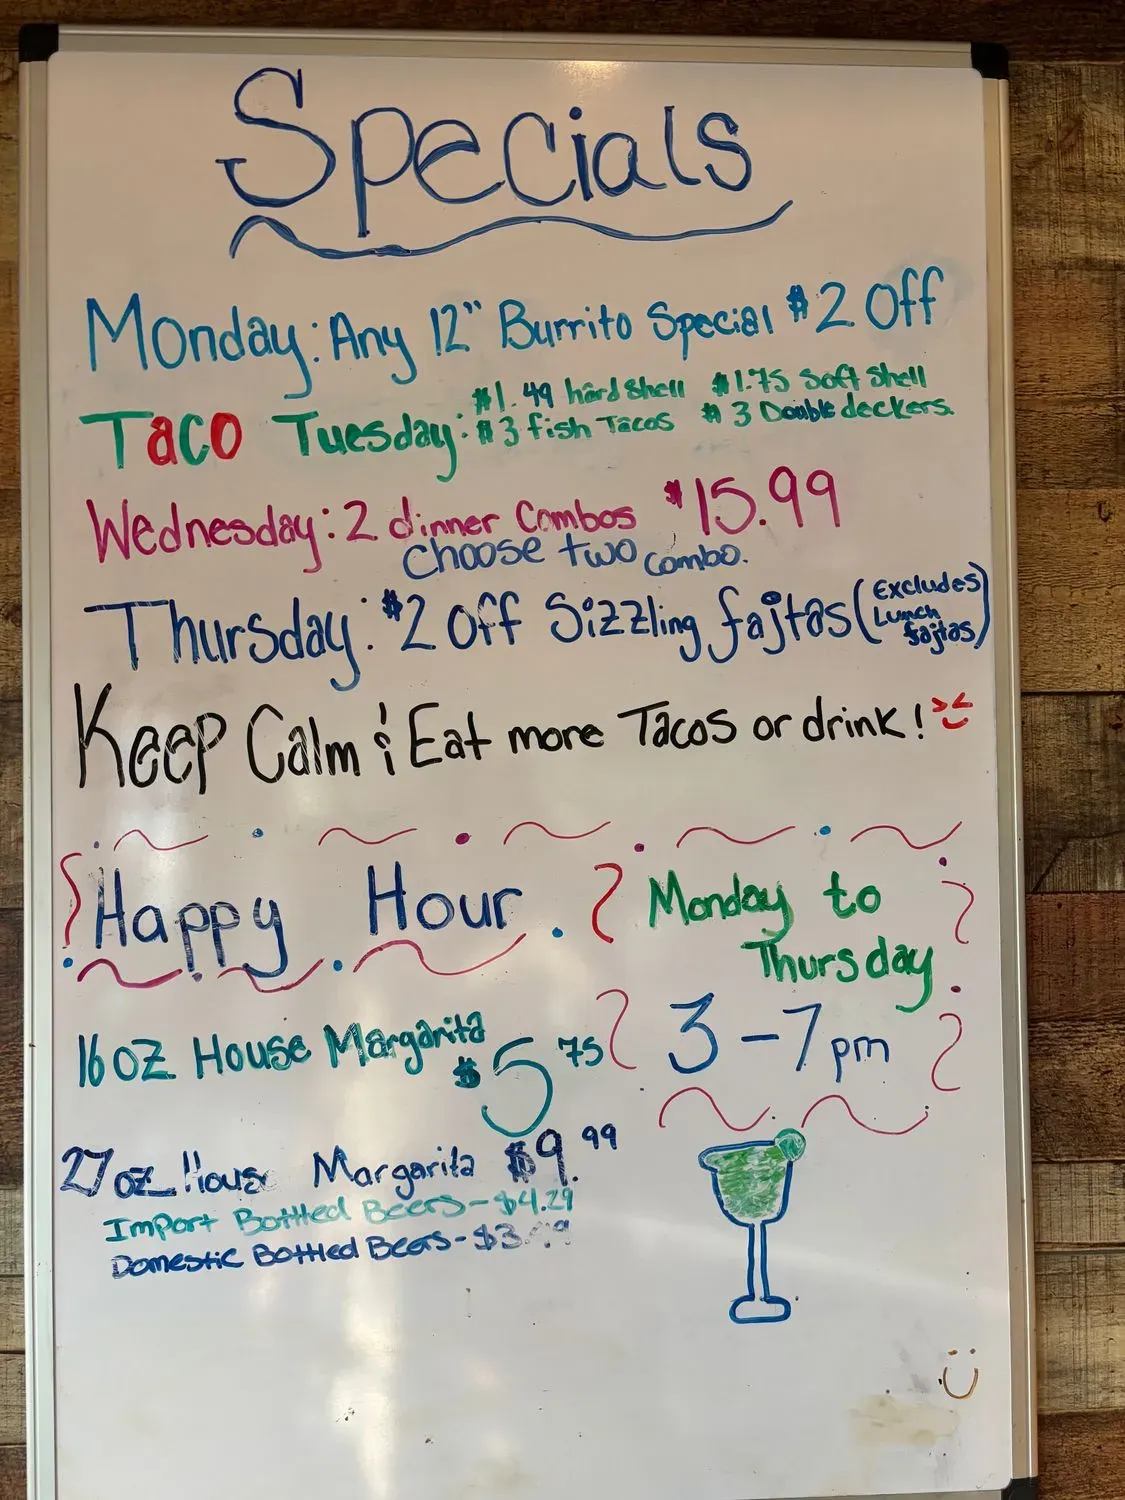 Specials
Monday: Any 12" Burrito Special $2 Off
Taco Tuesday: $1.49 hard shell $1.75 Soft Shell
$3 fish Tacos $3 Double deckers.
Wednesday: 2 dinner Combos $15.99
Choose two combo.
Thursday: $2 Off Sizzling fajitas (Excludes Lunch fajitas)
Keep Calm & Eat more Tacos or drink!
Happy Hour
Monday to
Thursday
3-7pm
16 oz House Margarita $5.75
27 oz House Margarita $9.99
Import Bottled Beers - $4.29
Domestic Bottled Beers -